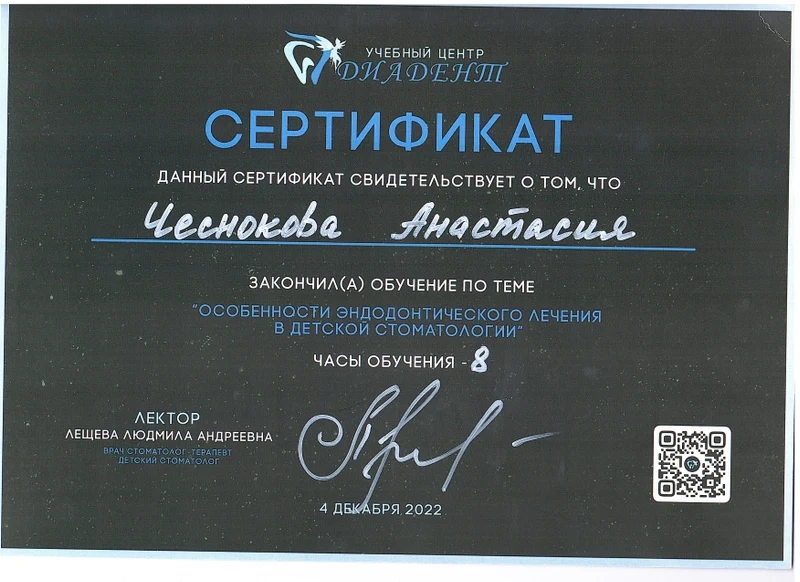 УЧЕБНЫЙ ЦЕНТР
ДИАДЕНТ
СЕРТИФИКАТ
ДАННЫЙ СЕРТИФИКАТ СВИДЕТЕЛЬСТВУЕТ О ТОМ, ЧТО
Чеснокова Анастасия
ЗАКОНЧИЛ(А) ОБУЧЕНИЕ ПО ТЕМЕ
"ОСОБЕННОСТИ ЭНДОДОНТИЧЕСКОГО ЛЕЧЕНИЯ
В ДЕТСКОЙ СТОМАТОЛОГИИ"
ЧАСЫ ОБУЧЕНИЯ - 8
ЛЕКТОР
ЛЕЩЕВА ЛЮДМИЛА АНДРЕЕВНА
ВРАЧ СТОМАТОЛОГ-ТЕРАПЕВТ
ДЕТСКИЙ СТОМАТОЛОГ
4 ДЕКАБРЯ 2022